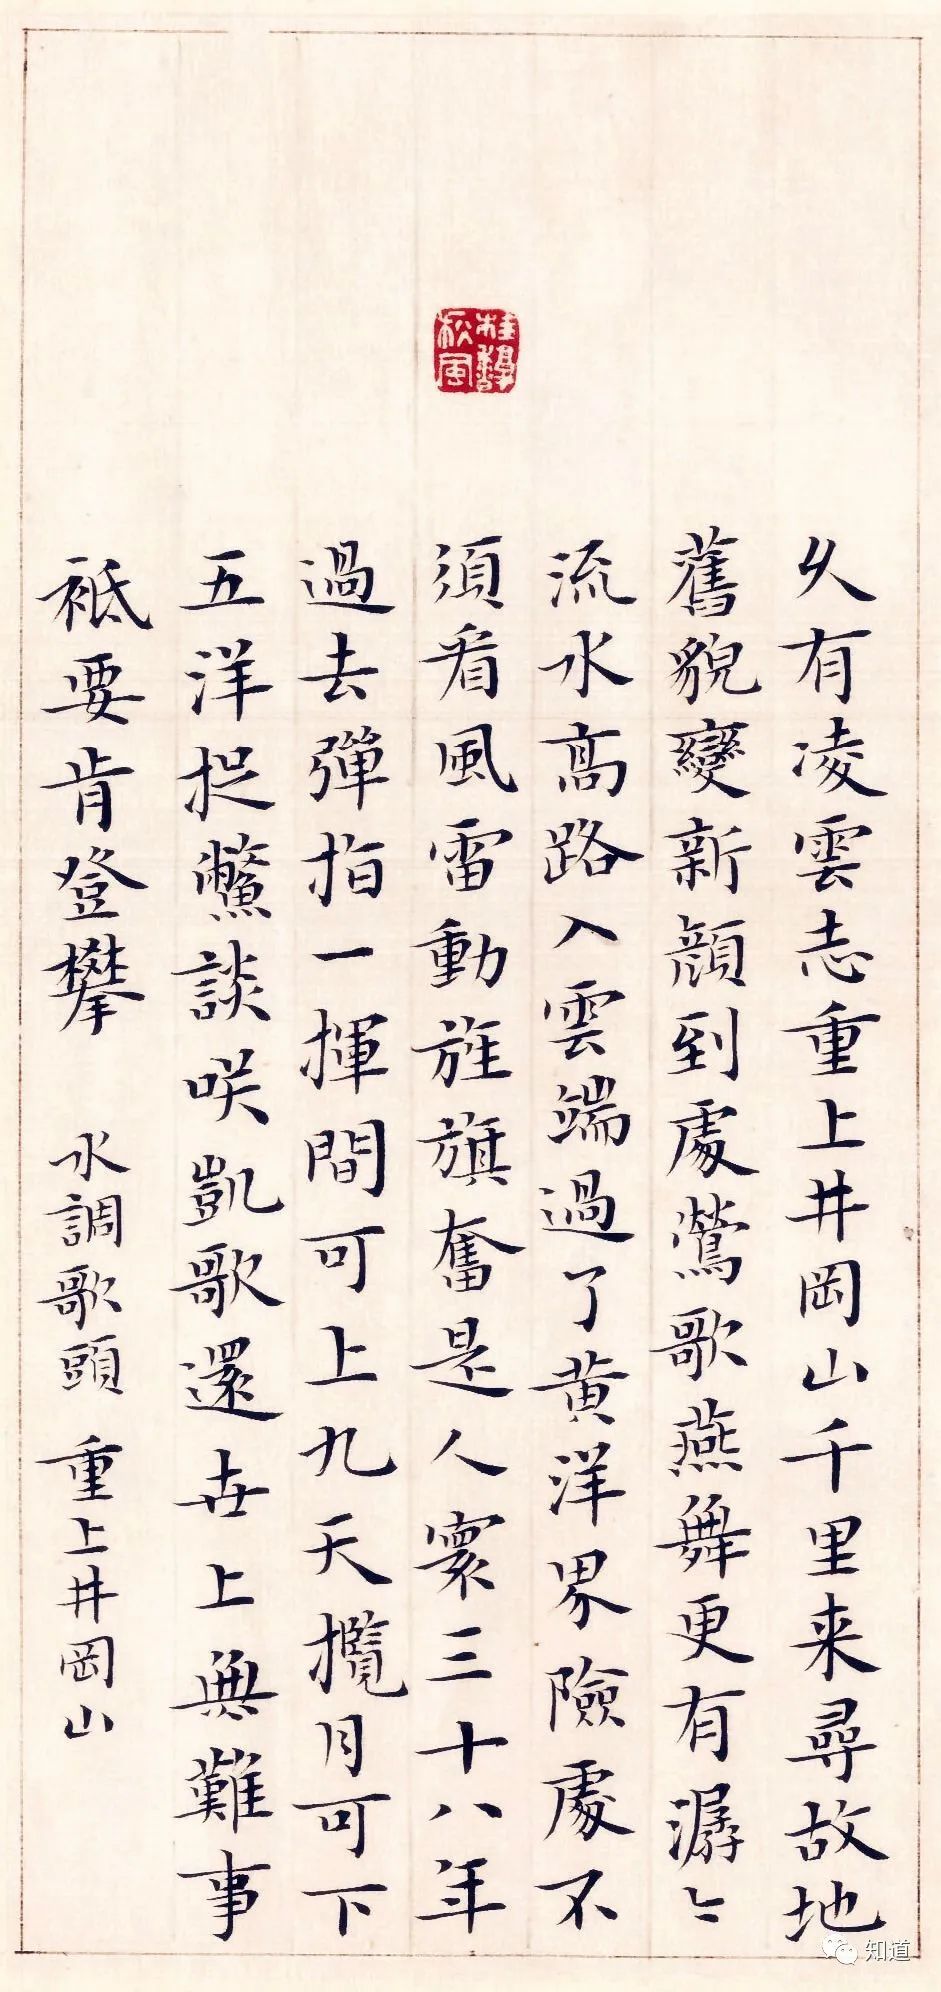 久有凌雲志重上井岡山千里来尋故地
舊貌變新顔到處鶯歌燕舞更有潺々
流水高路入雲端過了黄洋界險處不
須看風雷動旌旗奮是人寰三十八年
過去彈指一揮間可上九天攬月可下
五洋捉鱉談咲凱歌還世上無難事
衹要肯登攀 水調歌頭 重上井岡山
桂
松風
知道